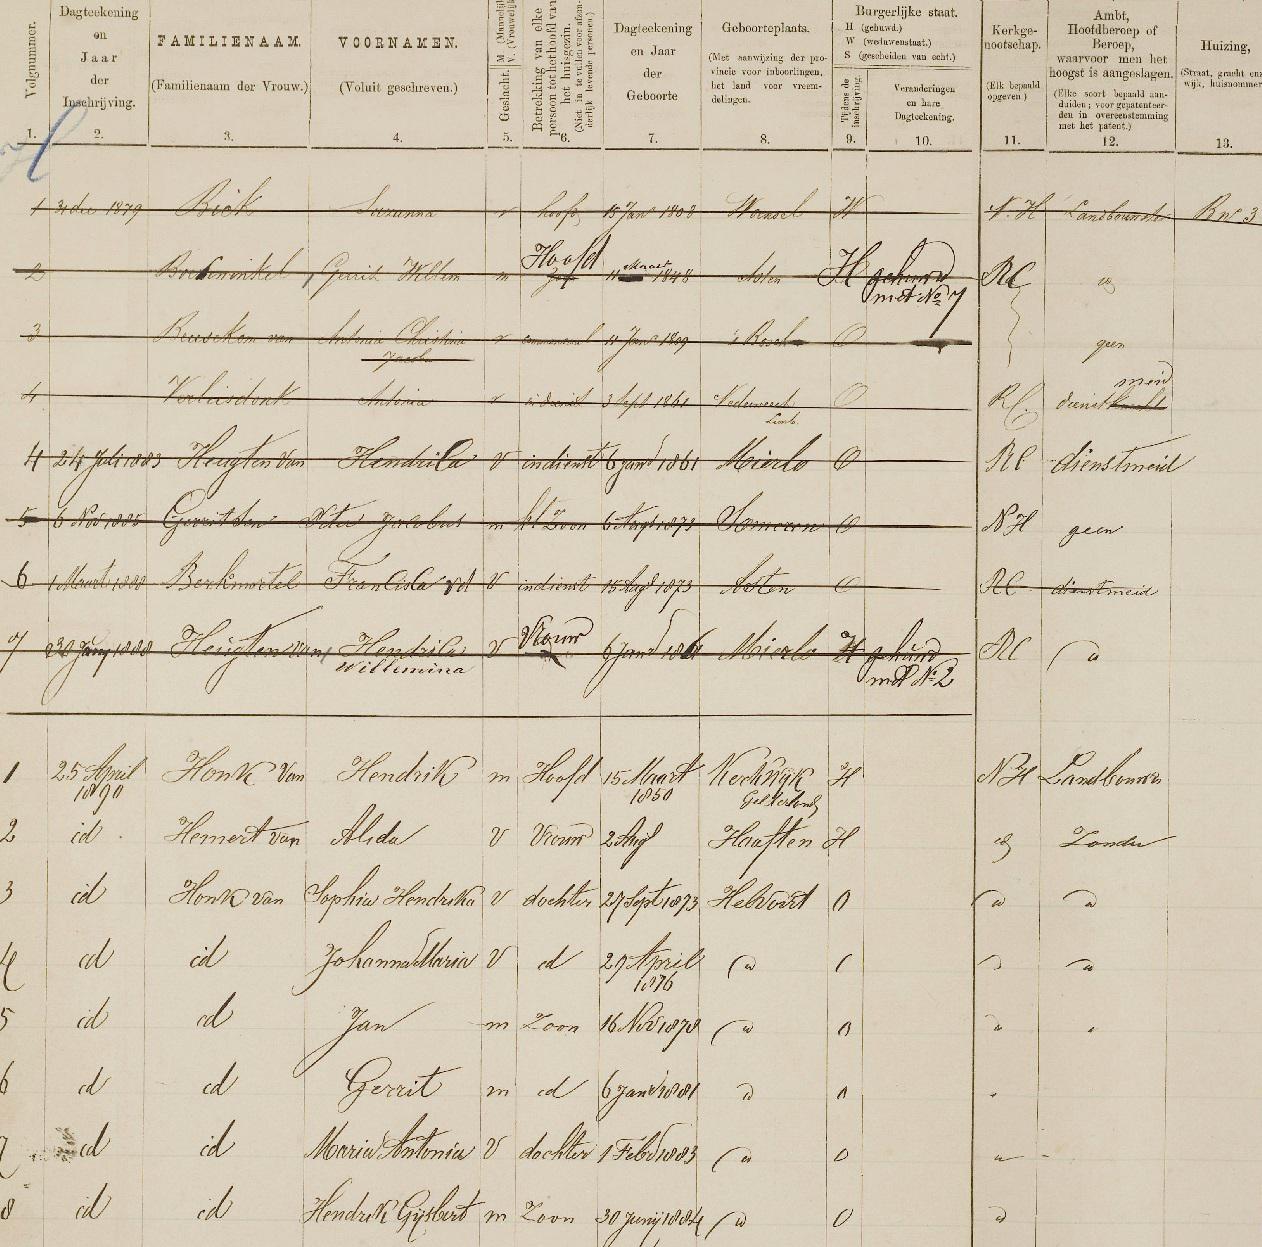 Volgnummer. Dagteekening en Jaar der Inschrijving. FAMILIENAAM. (Familienaam der Vrouw.) VOORNAMEN. (Voluit geschreven.) Geslacht. M (Mannelijk) V. (Vrouwelijk) Betrekking van elke persoon tot het hoofd van het huisgezin. (Niet in te vullen voor afzonderlijk levende personen.) Dagteekening en Jaar der Geboorte Geboorteplaats. (Met aanwijzing der provincie voor inboorlingen, het land voor vreemdelingen. Burgerlijke staat. H (gehuwd.) W (weduwenstaat.) S (gescheiden van echt.) Tijdens de inschrijving. Veranderingen en hare Dagteekening. Kerkgenootschap. (Elk bepaald opgeven.) Ambt, Hoofdberoep of Beroep, waarvoor men het hoogst is aangeslagen. (Elke soort bepaald aanduiden; voor gepatenteerden in overeenstemming met het patent.) Huizing, (Straat, gracht en wijk, huisnommer
1. 2. 3. 4. 5. 6. 7. 8. 9. 10. 11. 12. 13.
1 31 dec 1879 Suzanna v hoofd 15 Jan 1808 Woensel W N. H
2 Gerrit Willem m Hoofd 11 Maart 1848 Asten H gehuwd met No 7 RC
3 Beusekom van Antonia Christina Jacoba v commensaal 's Bosch O geen
4 Antonia v in dienst 3 Sept 1861 Nederweert Limb. O RC dienstmeid
4 24 Juli 1883 Heugten van Hendrika V indienst 6 Janr 1861 Mierlo O RC dienstmeid
5 6 Nov Gerritsen Peter Jacobus m Zoon 6 Someren O NH geen
6 1 Maart 1888 Berkmortel Franciska vd V indienst 15 1873 Asten O RC dienstmeid
7 30 Juny 1888 Heugten van Hendrika Willemina V Vrouw 6 Janr 1861 Mierlo H gehuwd met No 2 RC
1 25 April 1890 Honk van Hendrik m Hoofd 15 Maart 1850 Kerkwijk Gelderland H NH Landbouwer
2 id Hemert van Alida V Vrouw 2 Haaften H Zonder
3 id Honk van Sophia Hendrika V dochter 27 Sept 1873 Helvoirt O
4 id id Johanna Maria V id 29 April 1876
5 id id Jan m Zoon 16 Nov 1878 O
6 id id Gerrit m id 6 Janr 1881 O
7 id id Maria Antonia V dochter 1 Feb 1883 O
8 id id Hendrik Gijsbert m Zoon 30 Junij 1884 O